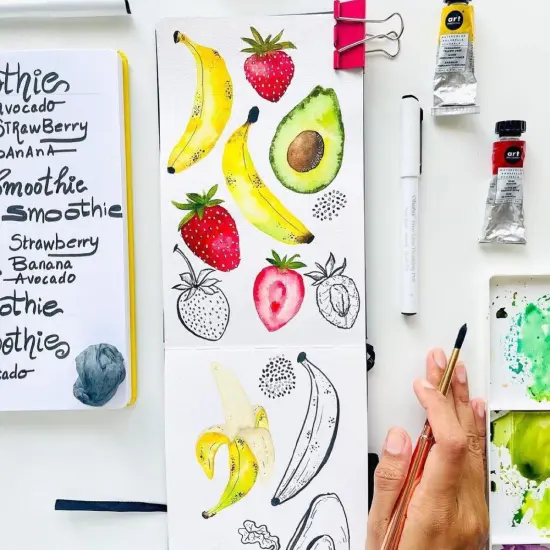 othie
Avocado
STRAWBerry
BANANA
Smoothie
smoothie
Strawberry
Banana
Avocado
othie
oothies
cado
art
art